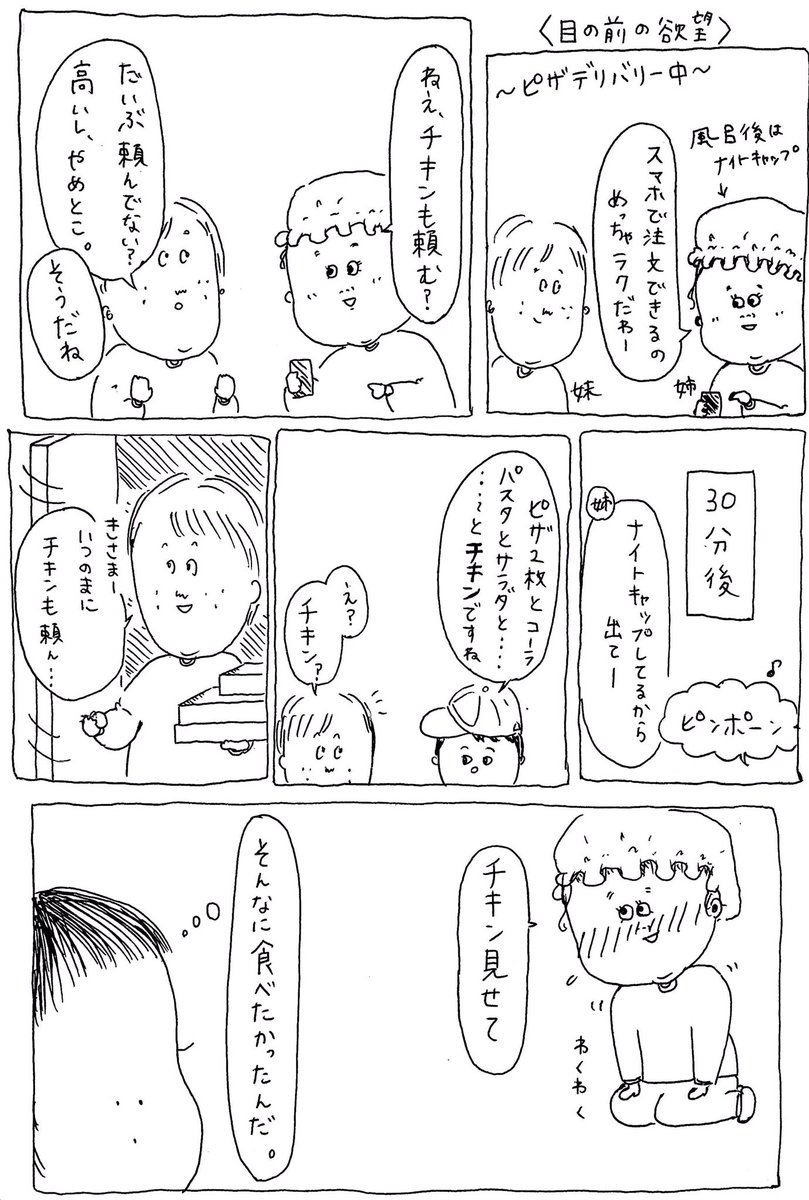 〈目の前の欲望〉
～ピザデリバリー中～
風呂後は
ナイトキャップ
スマホで注文できるの
めっちゃラクだわー
姉
妹
ねえ、チキンも頼む?
だいぶ頼んでない?
高いし、やめとこ。
そうだね
30分後
ピンポーン♪
姉
ナイトキャップしてるから
出てー
ピザ2枚とコーラ
パスタとサラダと・・・・
・・・・〜とチキンですね
え?
チキン?
きさまー
いつのまに
チキンも頼ん・・・・
チキン見せて
わくわく
そんなに食べたかったんだ。